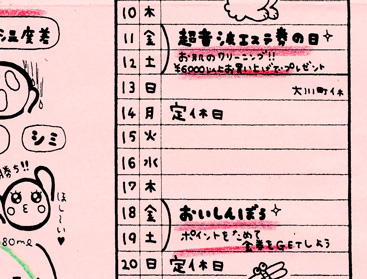 温度差
シミ
勝ち!!
ほし〜い♥
80ml
10 木
11 金 超音波エステ券の日
12 土 お肌のクリーニング!!
¥6000以上お買い上げでプレゼント
13 日 大川町休
14 月 定休日
15 火
16 水
17 木
18 金 おいしんぼう
19 土 ポイントをためて
金券をGETしよう
20 日 定休日